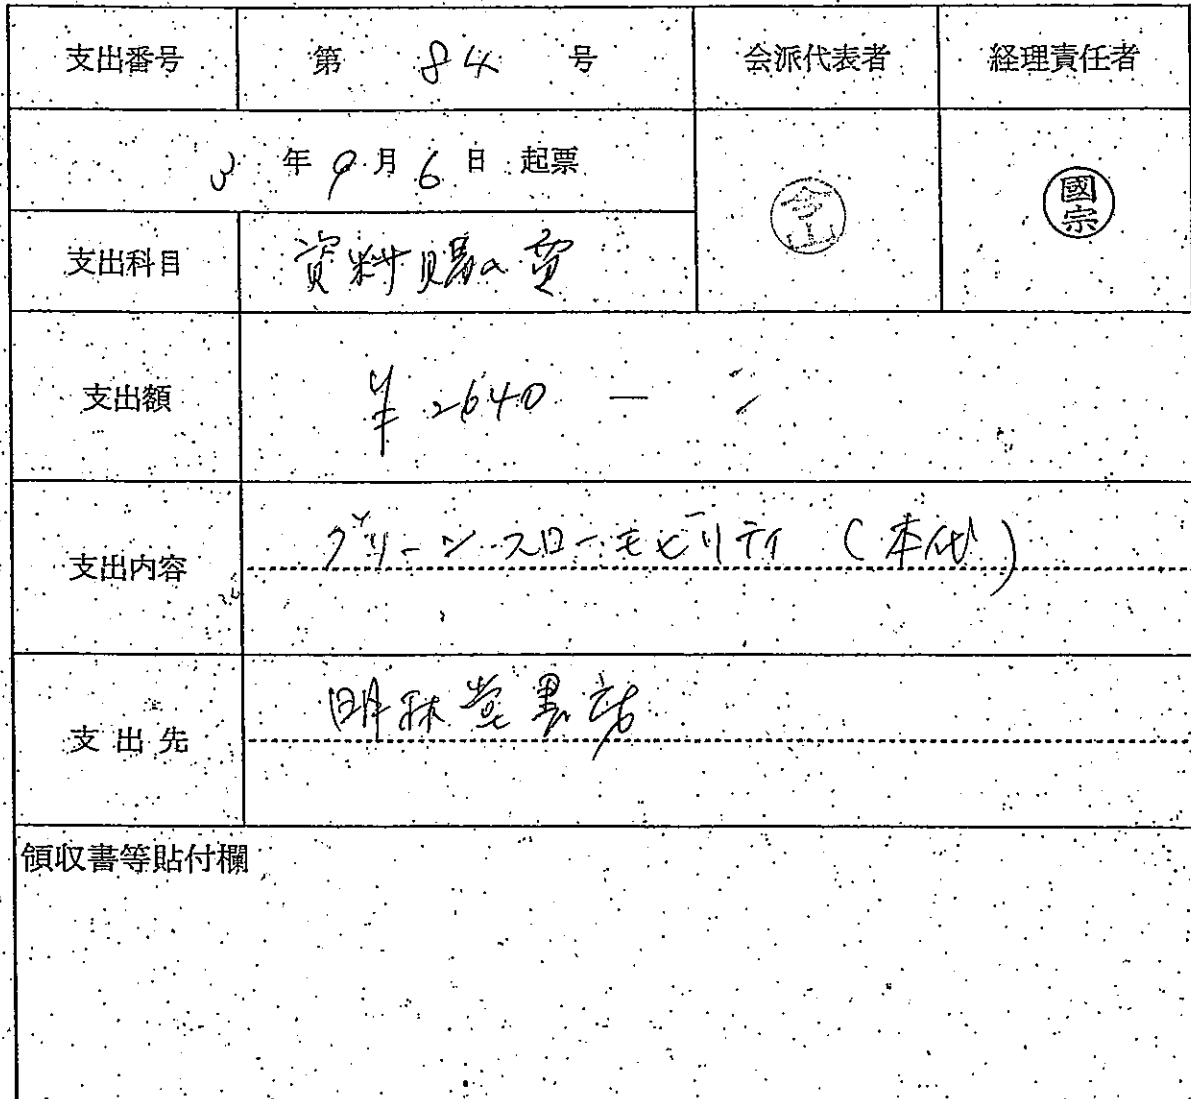 支出番号 第 84 号 会派代表者 経理責任者
3 年 9 月 6 日 起票
今山 國宗
支出科目 資料購入費
支出額 ¥2640 ―
支出内容 グリーンスローモビリティ (本代)
支出先 明林堂書店
領収書等貼付欄